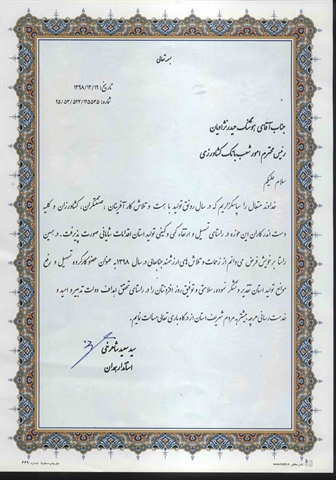 بسمه تعالی
تاریخ: ۱۳۹۸/۱۲/۱۹
شماره: ۹۵/۵۲/۵۴۴/۱۱۵۵۴۵
جناب آقای هوشنگ حیدرنژادیان
رئیس محترم امور شعب بانک کشاورزی
سلام علیکم
خداوند متعال را سپاسگزاریم که در سال رونق تولید با همت و تلاش کارآفرینان، صنعتگران، کشاورزان و کلیه
دست اندرکاران این حوزه در راستای تسهیل و ارتقاء کمی و کیفی تولید استان اقدامات شایانی صورت پذیرفت. در همین
راستا بر خویش فرض می‌دانم از زحمات و تلاش‌های ارزشمند جنابعالی در سال ۱۳۹۸ به عنوان عضو کارگروه تسهیل و رفع
موانع تولید استان تقدیر و تشکر نموده، سلامتی و توفیق روز افزونتان را در راستای تحقق اهداف دولت تدبیر و امید و
خدمت رسانی هرچه بیشتر به مردم شریف استان از درگاه باری تعالی مسالت نمایم.
سید سعید شاهرخی
استاندار همدان